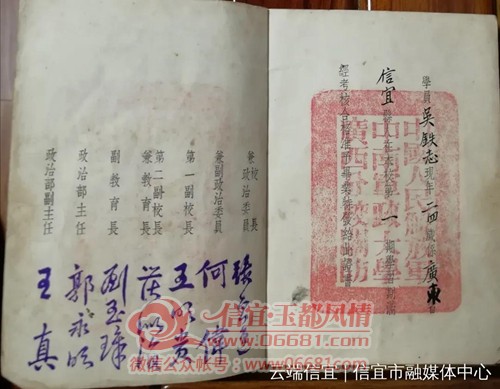 學員吳鉄志現年二四歲係廣東省
信宜縣人在本校第一期學習期滿
經考核合格准予畢業特發給此證書
中國人民解放軍
中南軍政大學
廣西分校關防
校長
兼政治委員
兼副政治委員 何偉
第一副校長 王明貴
第二副校長
兼教育長
副教育長
政治部主任 郭永明
政治部副主任 王真
信宜·玉都风情
www.06681.com
微信公众帐号:
云端信宜 | 信宜市融媒体中心